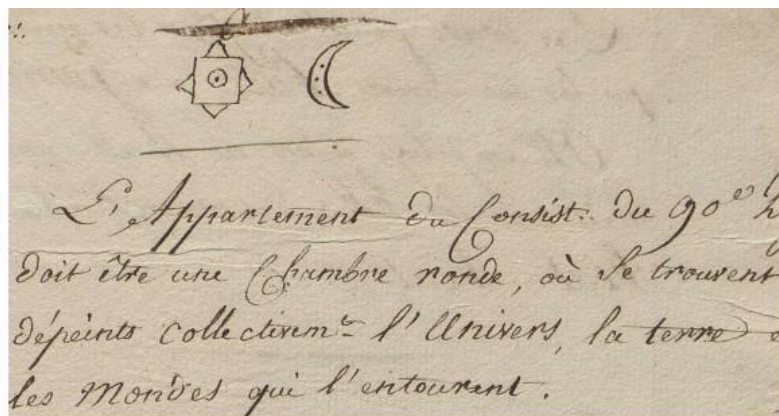 L'Appartement du Consist: du 90.e
doit être une Chambre ronde, où se trouvent
dépeints collectivem.t l'Univers, la terre e
les Mondes qui l'entourent.